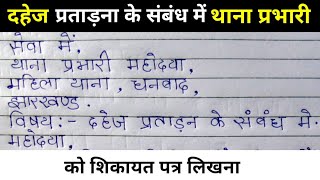 दहेज प्रताड़ना के संबंध में थाना प्रभारी
सेवा में,
थाना प्रभारी महोदया,
महिला थाना, धनबाद,
झारखण्ड.
विषय:- दहेज प्रताड़न के संबंध मे.
महोदया,
को शिकायत पत्र लिखना